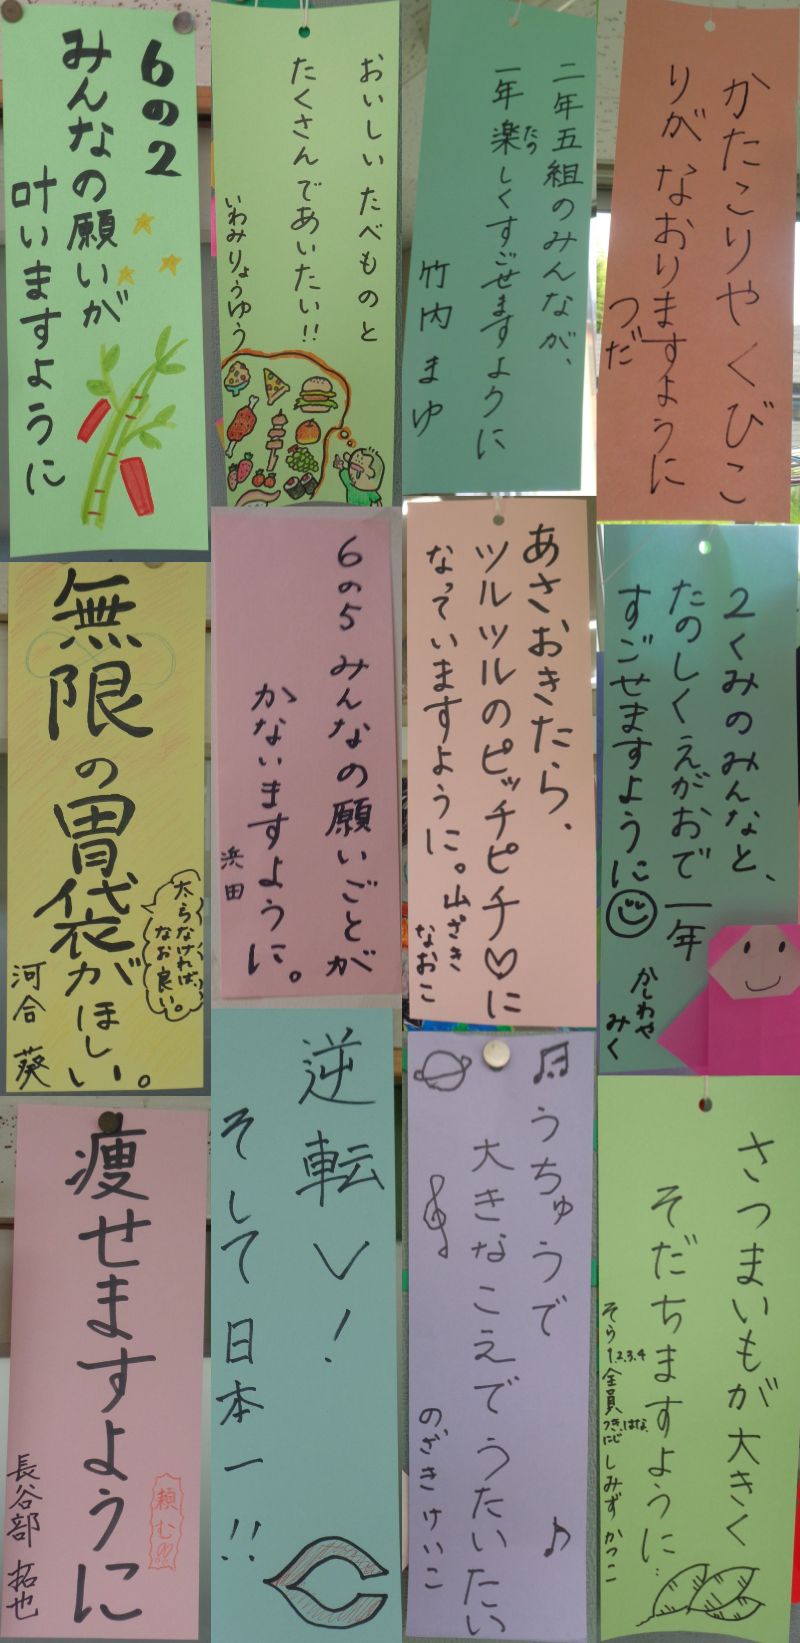 6の2
みんなの願いが
叶いますように
おいしい たべものと
たくさんであいたい!!
いわみりょうゆう
二年五組のみんなが、
一年楽しくすごせますように
たの
竹内 まゆ
かたこりや くびこ
りが なおりますように
つだ
無限の胃袋がほしい。
太らなければ、
なお良い。
河合 葵
6の5 みんなの願いごとが
かないますように。
浜田
あさおきたら、
ツルツルのピッチピチ♡に
なっていますように。
山ざき
なおこ
2くみのみんなと、
たのしくえがおで一年
すごせますように
かしわや
みく
痩せますように
頼む!!!
長谷部 拓也
逆転V!
そして日本一!!
うちゅうで
大きなこえでうたいたい
のざき けいこ
さつまいもが大きく
そだちますように…
そら1.2.3.4
全員
つき.はな.
にじ
しみず かつこ